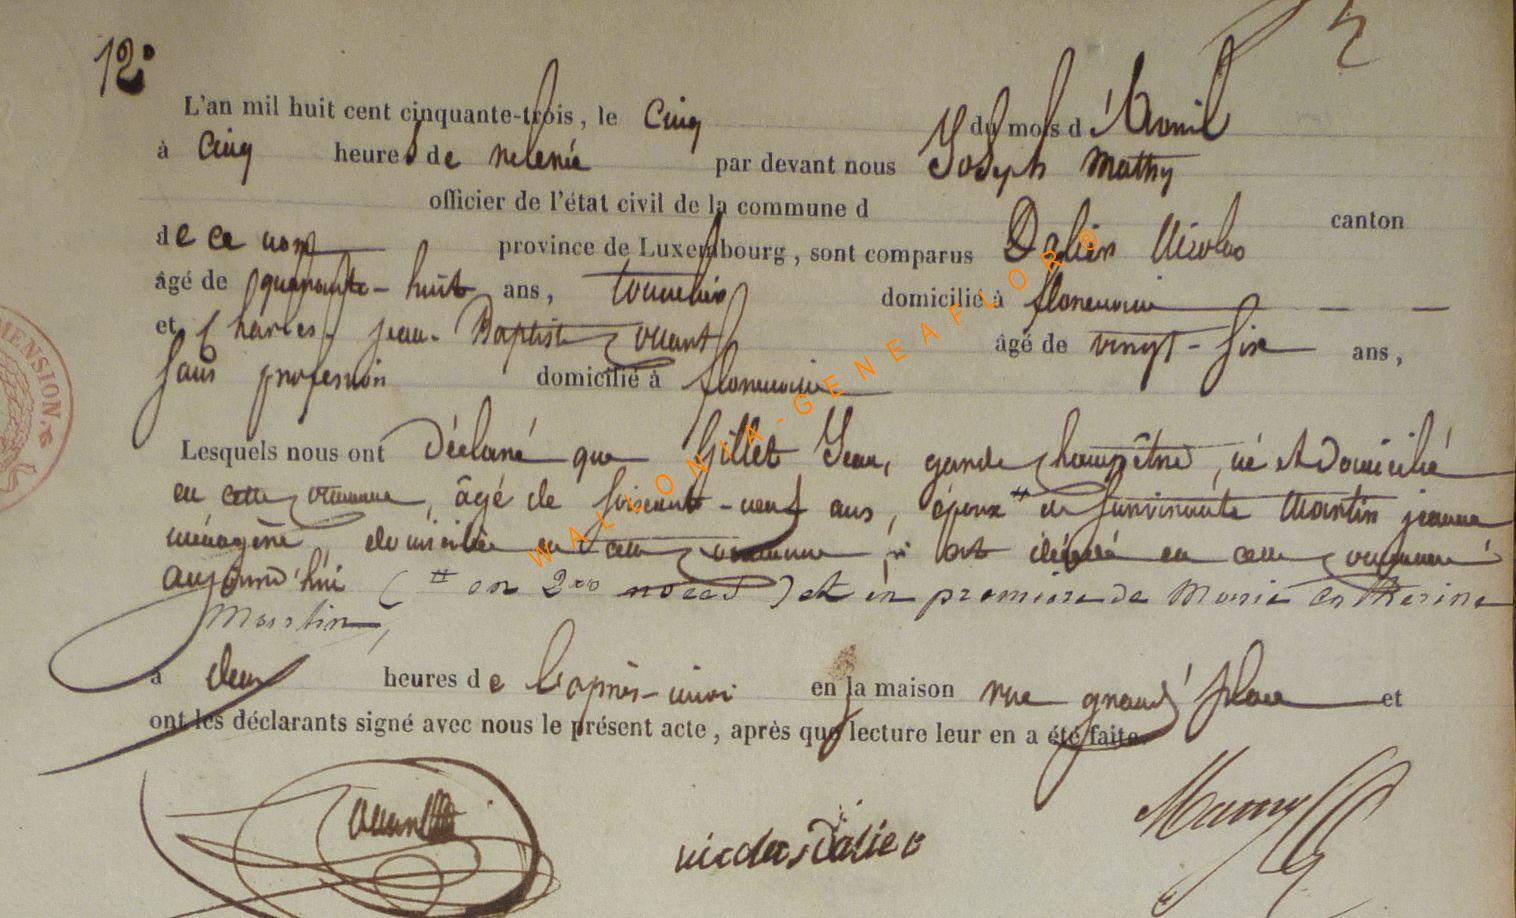 12°
L'an mil huit cent cinquante-trois, le cinq du mois d'Avril
à cinq heures de relevée par devant nous Joseph Mathy
officier de l'état civil de la commune d canton
de ce nom province de Luxembourg, sont comparus Dalier Nicolas
âgé de quarante-huit ans, tonnelier domicilié à florenville
et Charles-jean-Baptiste âgé de vingt-six ans,
sans profession domicilié à florenville
Lesquels nous ont Déclaré que Gillet Jean, garde champêtre, né et Domicilié
en cette commune, âgé de soixante-neuf ans, époux # de survivante Martin jeanne
ménagère, domiciliée en cette commune, est décédé en cette commune
aujourd'hui (# en 2des noces) et en premiere de Marie Catherine
Martin,
à deux heures de l'après-midi en la maison rue grand'place et
ont les déclarants signé avec nous le présent acte, après que lecture leur en a été faite.
nicolas Dalier
WALLONIA-GENEAFLOR ®
MENSION.